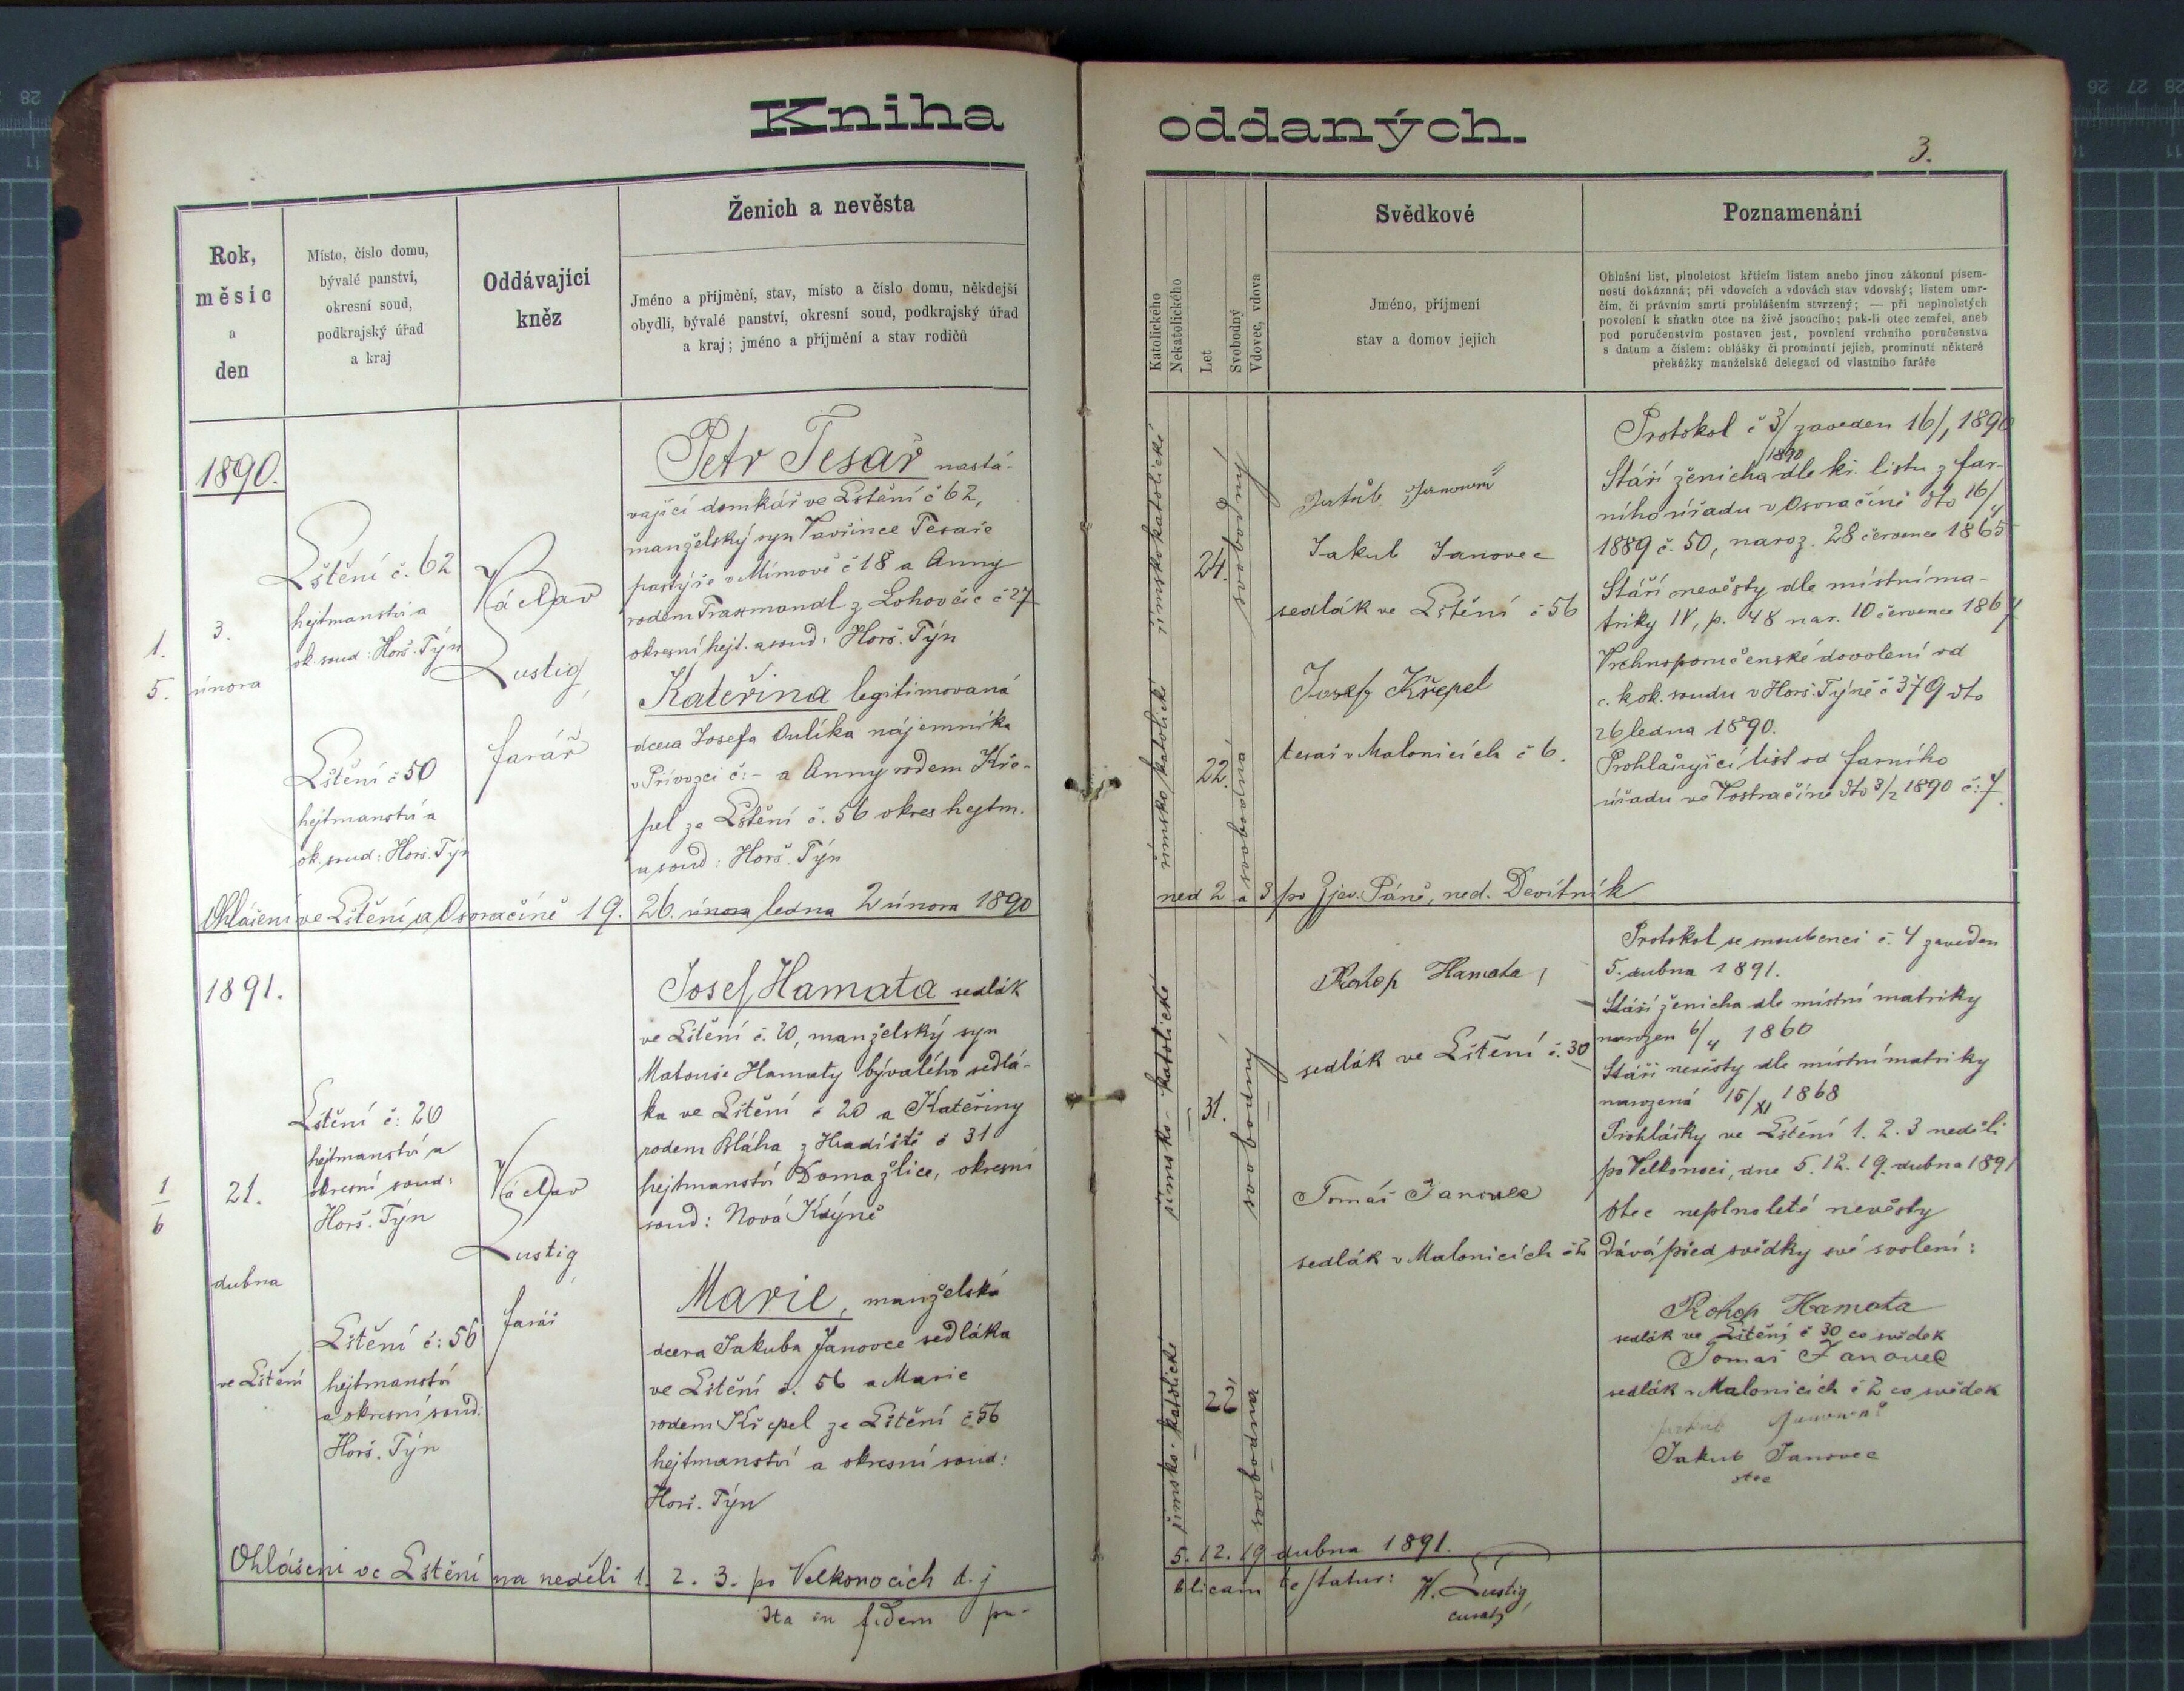 Kniha oddaných.
3.
Rok,
měsíc
a
den
Místo, číslo domu,
bývalé panství,
okresní soud,
podkrajský úřad
a kraj
Oddávající
kněz
Ženich a nevěsta
Jméno a příjmění, stav, místo a číslo domu, někdejší
obydlí, bývalé panství, okresní soud, podkrajský úřad
a kraj; jméno a příjmění a stav rodičů
Katolického
Nekatolického
Let
Svobodný
Vdovec, vdova
Svědkové
Jméno, příjmení
stav a domov jejich
Poznamenání
Ohlašní list, plnoletost křticím listem anebo jinou zákonní písem-
ností dokázaná; při vdovcích a vdovách stav vdovský; listem umr-
čím, či právním smrti prohlášením stvrzený; — při neplnoletých
povolení k sňatku otce na živě jsoucího; pak-li otec zemřel, aneb
pod poručenstvím postaven jest, povolení vrchního poručenstva
s datum a číslem: oblášky či prominutí jejich, prominutí některé
překážky manželské delegací od vlastního faráře
1890.
1.
5.
3.
února
Lštění č. 62
hejtmanství a
ok. soud: Horš. Týn
Lštění č 50
hejtmanství a
ok. soud: Horš. Týn
Václav
Lustig,
farář
Petr Tesař nastá-
vající domkář ve Lštění č 62,
manželský syn Vavřince Tesaře
pastýře v Mímově č 18 a Anny
rodem Traxmandl z Lohovčic č 27
okresní hejt. a soud: Horš. Týn
Kateřina legitimovaná
dcera Josefa Oulíka nájemníka
v Přívozci č:– a Anny rodem Kře-
pel ze Lštění č. 56 okres hejtm.
a soud: Horš. Týn
římskokatolické
24.
svobodný
římsko katolické
22.
svobodná
Jakub Janovec
sedlák ve Lštění č 56
Josef Křepel
tesař v Malonicích č 6.
Protokol č 3/1890 zaveden 16/1 1890
Stáří ženicha dle kř. listu z far-
ního úřadu v Osvračíně dto 16/4
1889 č. 50, naroz. 28 července 1865
Stáří nevěsty dle místní ma-
triky IV, p. 48 nar. 10 července 1867
Vrchnoporučenské dovolení od
c. k. ok. soudu v Horš. Týně č 379 dto
26 ledna 1890.
Prohlašující list od farního
úřadu ve Vostračíně dto 3/2 1890 č: 7.
Ohlášeni ve Lštění a Osvračíně 19. 26. února ledna 2 února 1890 ned 2 a 3 po Zjev. Páně, ned. Devítník
1891.
1
6
21.
dubna
ve Lštění
Lštění č: 20
hejtmanství a
okresní soud:
Horš. Týn
Lštění č: 56
hejtmanství
a okresní soud:
Horš. Týn
Václav
Lustig,
farář
Josef Hamata sedlák
ve Lštění č. 20, manželský syn
Matouše Hamaty bývalého sedlá-
ka ve Lštění č 20 a Kateřiny
rodem Bláha z Hradiště č 31
hejtmanství Domažlice, okresní
soud: Nová Kdýně
Marie, manželská
dcera Jakuba Janovce sedláka
ve Lštění č. 56 a Marie
rodem Křepel ze Lštění č 56
hejtmanství a okresní soud:
Horš. Týn
římsko-katolické
31.
svobodný
římsko-katolické
22
svobodna
Prokop Hamata,
sedlák ve Lštění č. 30
Tomáš Janovec
sedlák v Malonicích č 2
Protokol se snoubenci č. 4 zaveden
5. dubna 1891.
Stáří ženicha dle místní matriky
narozen 6/4 1860
Stáří nevěsty dle místní matriky
narozená 15/XI 1868
Prohlášky ve Lštění 1. 2. 3 neděli
po Velkonoci, dne 5. 12. 19. dubna 1891
Otec neplnoleté nevěsty
dává před svědky své svolení:
Prokop Hamata
sedlák ve Lštění č 30 co svědek
Tomáš Janovec
sedlák v Malonicích č 2 co svědek
Jakub Janovec
otec
Ohlášeni ve Lštění na neděli 1. 2. 3. po Velkonocích t. j 5. 12. 19 dubna 1891.
Ita in fidem pu- blicam testatur: W. Lustig,
curatus